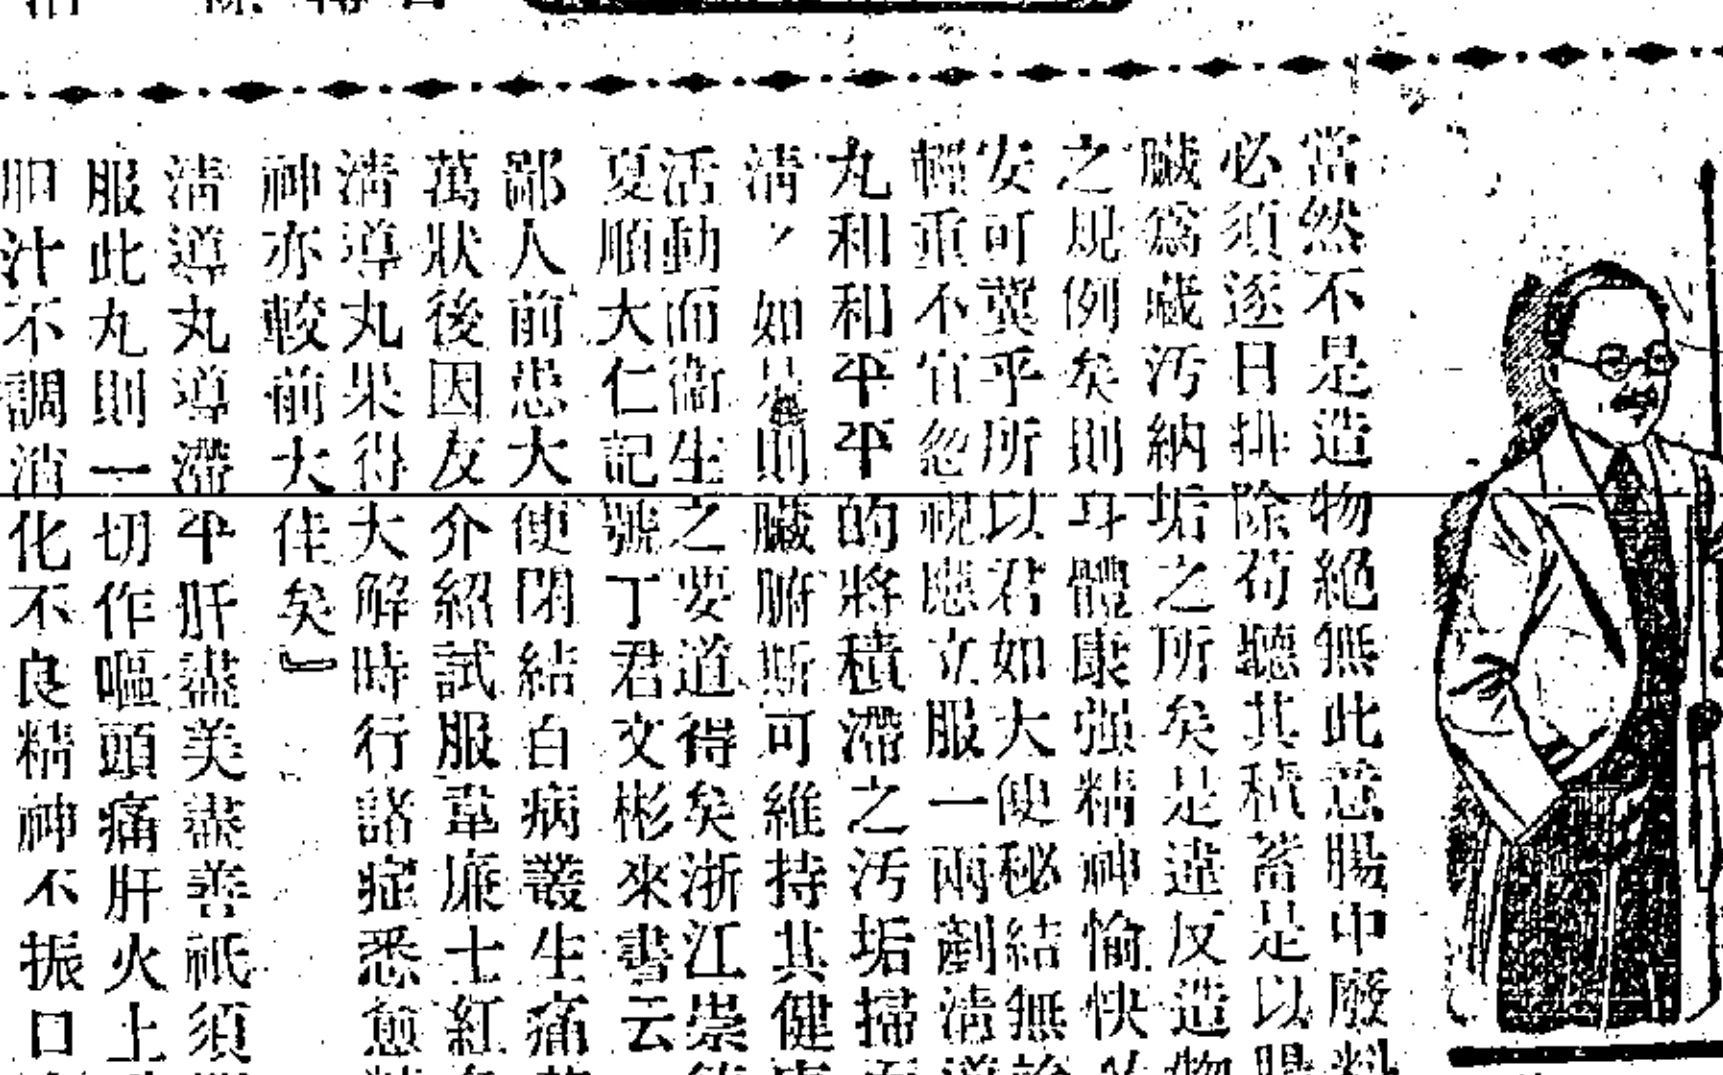 當然不是造物絕無此意腸中廢料
必須逐日排除苟聽其積蓄是以腸
臟爲藏污納垢之所矣是違反造物
之規例矣則身體康强精神愉快
安可冀乎所以君如大便秘結無
輕重不宜忽視應立服一兩劑清導
丸和和平平的將積滯之污垢掃
清之如是則臟腑斯可維持其健康
活動而衞生之要道得矣浙江崇
夏順大仁記號丁君文彬來書云
鄙人前患大便閉結白病叢生痛
萬狀後因友介紹試服韋廉士紅
清導丸果得大解時行諸症悉愈精
神亦較前大佳矣』
清導丸導滯平肝盡美盡善祇須
服此丸則一切作嘔頭痛肝火上
胆汁不調消化不良精神不振口